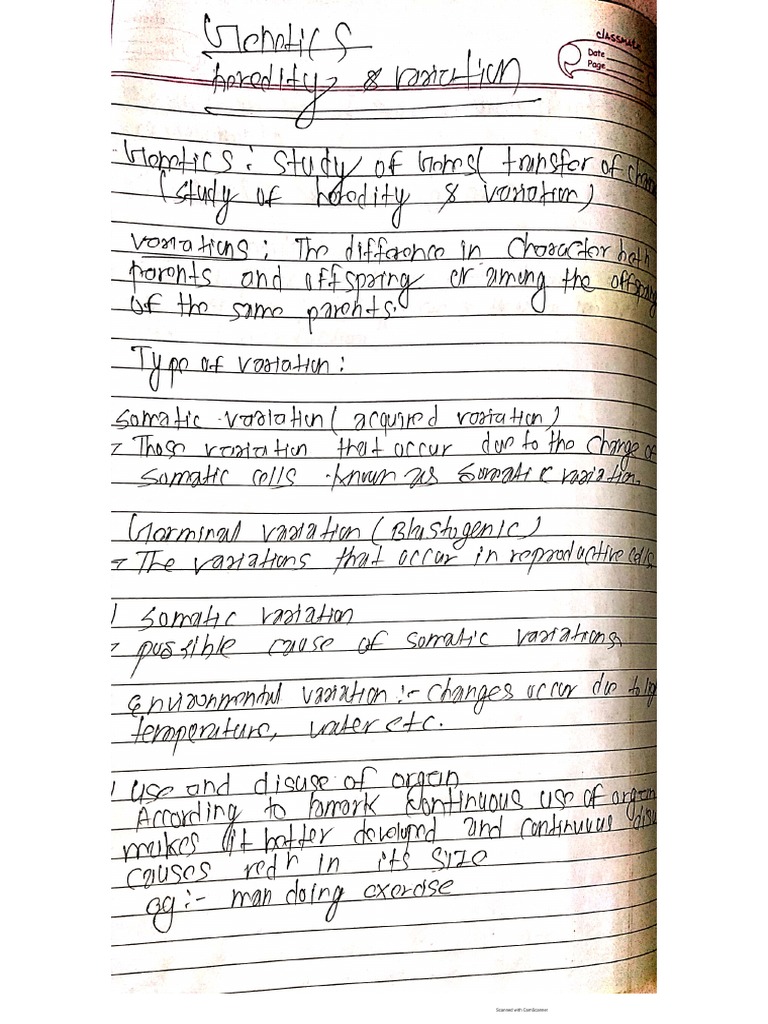 Genetics
heredity & variation
classmate
Date
Page
Genetics: Study of Genes( transfer of
(study of heredity & variation)
variations: The difference in Character beth
parents and offspring or among the offspring
of the same parents.
Type of variation:
somatic variation( acquired variation)
Those variation that occur due to the change of
somatic cells known as Somatic variation.
Germinal variation (Blastogenic)
The variations that occur in reproductive cells
1 somatic variation
possible cause of somatic variations
Environmental variation :- changes occur due to
temperature, water etc.
use and disuse of organ
According to lamark continuous use of organ
makes it better developed and continuous
causes redn in its size
eg:- man doing exercise
Scanned with CamScanner